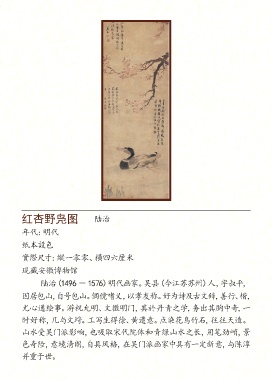 红杏野凫图 陆治
年代: 明代
纸本設色
實際尺寸: 縱一零零、橫四六厘米
現藏安徽博物馆
陆治 (1496 — 1576) 明代画家。吴县 (今江苏苏州) 人, 字叔平,
因居包山, 自号包山。倜傥嗜义, 以孝友称。好为诗及古文辞, 善行、楷,
尤心通绘事。游祝允明、文徵明门, 其於丹青之学, 务出其胸中奇, 一
时好称, 几与文埒。工写生得徐、黄遗意。点染花鸟竹石, 往往天造。
山水受吴门派影响, 也吸取宋代院体和青绿山水之长, 用笔劲峭, 景
色奇险, 意境清朗, 自具风格, 在吴门派画家中具有一定新意, 与陈淳
并重于世。